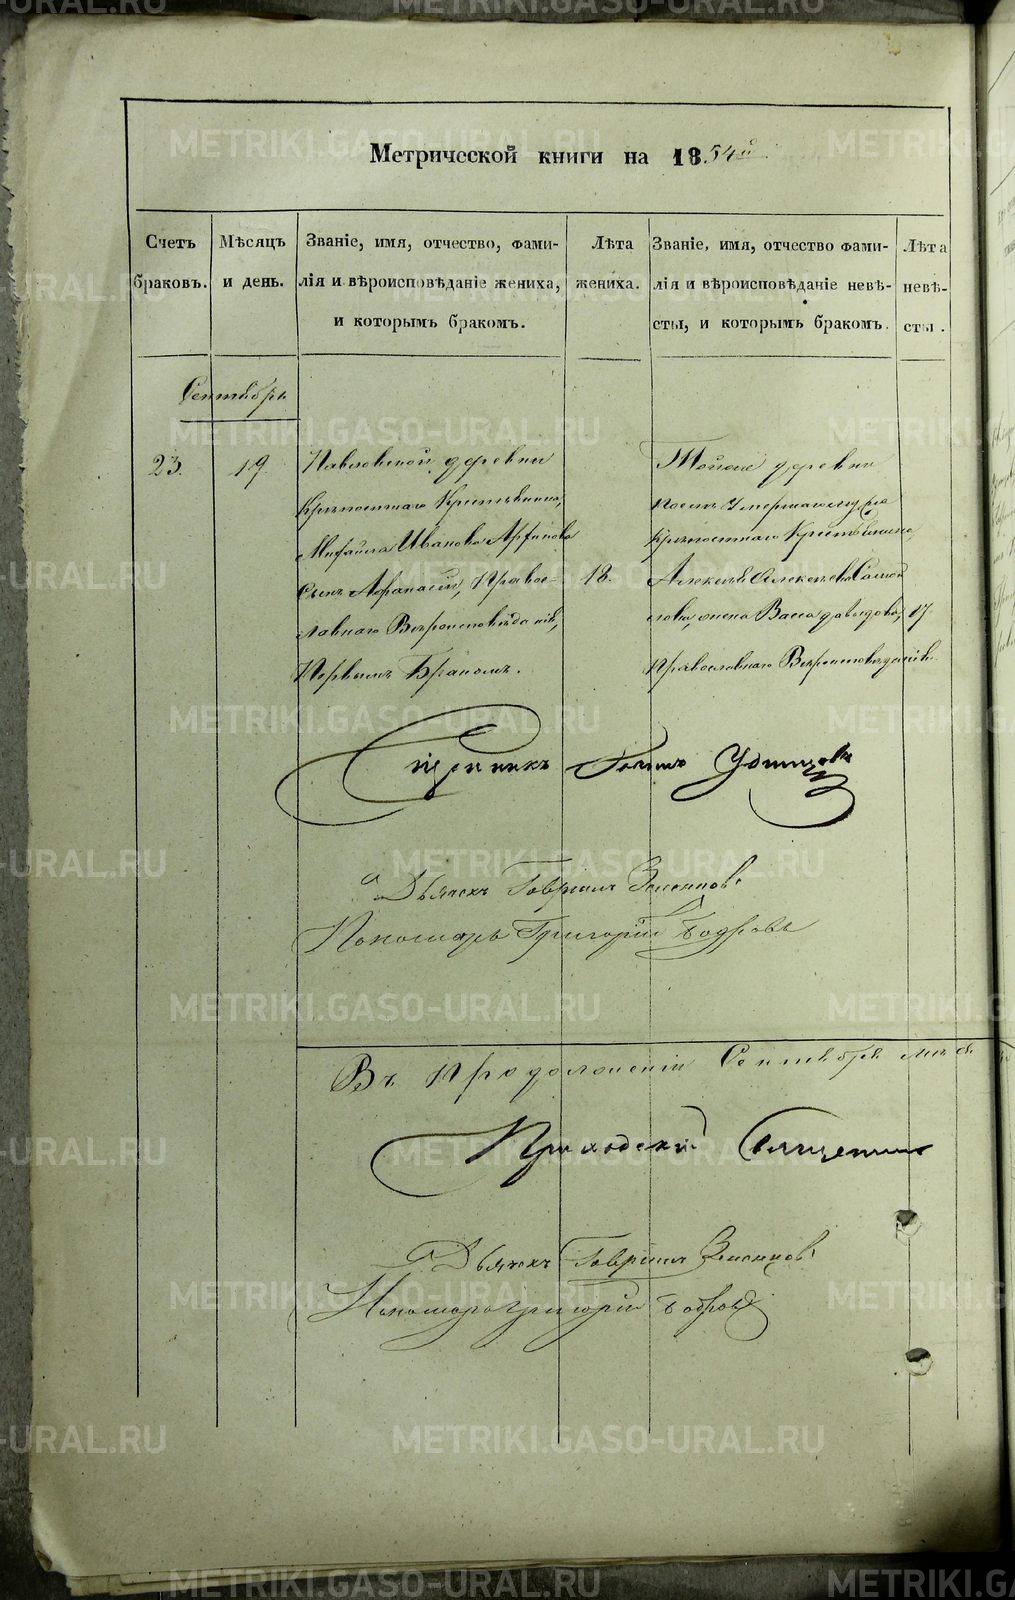 Метрической книги на 1854й
Счетъ браковъ.
Мѣсяцъ и день.
Званіе, имя, отчество, фами-
лія и вѣроисповѣданіе жениха,
и которымъ бракомъ.
Лѣта
жениха.
Званіе, имя, отчество фами-
лія и вѣроисповѣданіе невѣ-
сты, и которымъ бракомъ.
Лѣта
невѣ-
сты.
Сентябрь
23. 19. Павловской деревни
Крѣпостнаго Крестьянина,
Михаила Иванова
сынъ Афанасій, Правос- 18.
лавнаго Вѣроисповѣданія,
Первымъ Бракомъ.
Тойже деревни
послѣ Умершаго
Крѣпостнаго Крестьянина,
Алексѣя Алексѣева
жена Васса Давыдова, 17.
Православнаго Вѣроисповѣданія.
Священникъ
Дьячекъ Гавріилъ
Пономарь Григорій Бодровъ
Въ Продолженіи Сентября
Приходскій Священникъ
Дьячекъ Гавріилъ
Пономарь Григорій Бодровъ
METRIKI.GASO-URAL.RU